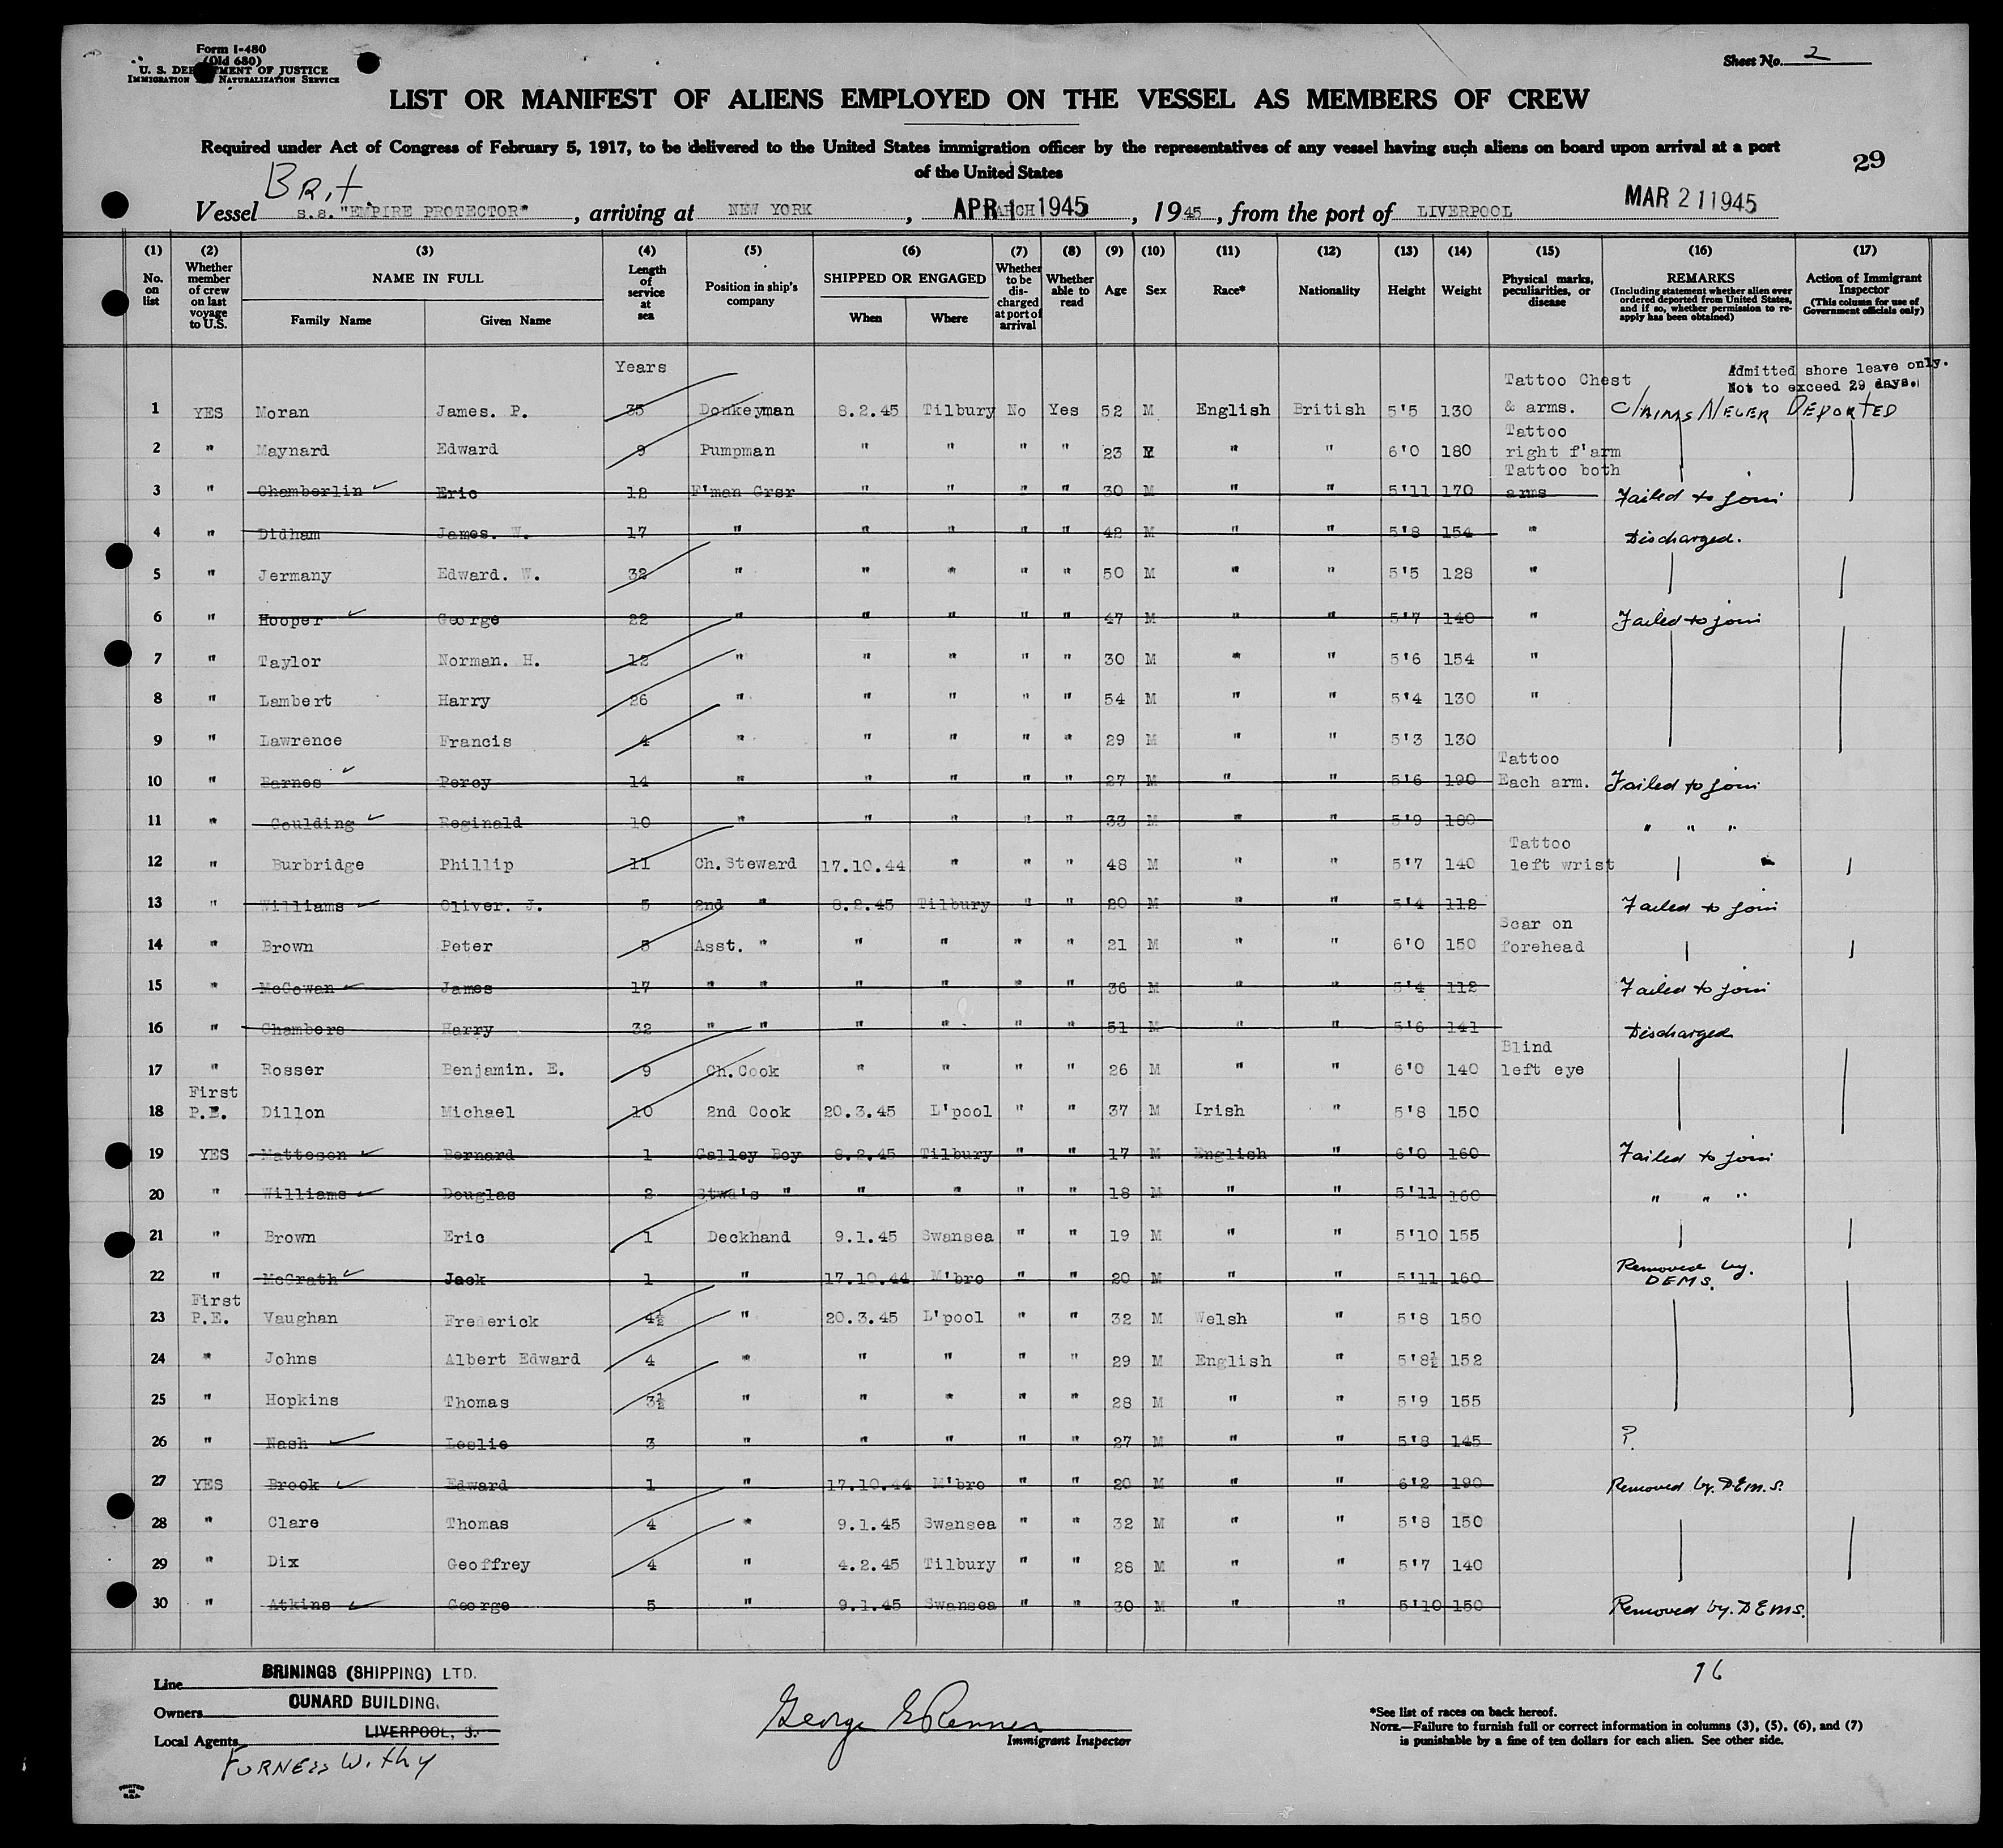 Form I-480
(Old 680)
U. S. DEPARTMENT OF JUSTICE
IMMIGRATION AND NATURALIZATION SERVICE
Sheet No. 2
LIST OR MANIFEST OF ALIENS EMPLOYED ON THE VESSEL AS MEMBERS OF CREW
Required under Act of Congress of February 5, 1917, to be delivered to the United States immigration officer by the representatives of any vessel having such aliens on board upon arrival at a port
of the United States
29
BRIT.
Vessel s.s. "EMPIRE PROTECTOR" , arriving at NEW YORK , APR 1 1945 , 19 45 , from the port of LIVERPOOL MAR 21 1945
(1) (2) (3) (4) (5) (6) (7) (8) (9) (10) (11) (12) (13) (14) (15) (16) (17)
No. on list | Whether member of crew on last voyage to U.S. | NAME IN FULL Family Name Given Name | Length of service at sea | Position in ship's company | SHIPPED OR ENGAGED When Where | Whether to be discharged at port of arrival | Whether able to read | Age | Sex | Race* | Nationality | Height | Weight | Physical marks, peculiarities, or disease | REMARKS (Including statement whether alien ever ordered deported from United States, and if so, whether permission to reapply has been obtained) | Action of Immigrant Inspector (This column for use of Government officials only)
Years
Admitted shore leave only.
Not to exceed 29 days.
1 YES Moran James. P. 35 Donkeyman 8.2.45 Tilbury No Yes 52 M English British 5'5 130 Tattoo Chest & arms. Claims Never Deported
2 " Maynard Edward 9 Pumpman " " " " 23 M " " 6'0 180 Tattoo right f'arm
3 " Chamberlin Eric 12 F'man Grsr " " " " 30 M " " 5'11 170 Tattoo both arms Failed to join
4 " Didham James. W. 17 " " " " " 42 M " " 5'8 154 " Discharged.
5 " Jermany Edward. W. 32 " " " " " 50 M " " 5'5 128 "
6 " Hooper George 22 " " " " " 47 M " " 5'7 140 " Failed to join
7 " Taylor Norman. H. 12 " " " " " 30 M " " 5'6 154 "
8 " Lambert Harry 26 " " " " " 54 M " " 5'4 130 "
9 " Lawrence Francis 4 " " " " " 29 M " " 5'3 130
10 " Barnes Percy 14 " " " " " 27 M " " 5'6 190 Tattoo Each arm. Failed to join
11 " Goulding Reginald 10 " " " " " 33 M " " 5'9 180 " " "
12 " Burbridge Phillip 11 Ch. Steward 17.10.44 " " " 48 M " " 5'7 140 Tattoo left wrist
13 " Williams Oliver. J. 5 2nd " 8.2.45 Tilbury " " 20 M " " 5'4 112 Failed to join
14 " Brown Peter 5 Asst. " " " " " 21 M " " 6'0 150 Scar on forehead
15 " McGowan James 17 " " " " " " 36 M " " 5'4 112 Failed to join
16 " Chambers Harry 32 " " " " " " 51 M " " 5'6 141 Discharged
17 " Rosser Benjamin. E. 9 Ch. Cook " " " " 26 M " " 6'0 140 Blind left eye
18 First P.E. Dillon Michael 10 2nd Cook 20.3.45 L'pool " " 37 M Irish " 5'8 150
19 YES Matteson Bernard 1 Galley Boy 8.2.45 Tilbury " " 17 M English " 6'0 160 Failed to join
20 " Williams Douglas 2 Stwd's " " " " " 18 M " " 5'11 160 " " "
21 " Brown Eric 1 Deckhand 9.1.45 Swansea " " 19 M " " 5'10 155
22 " McGrath Jack 1 " 17.10.44 M'bro " " 20 M " " 5'11 160 Removed by. DEMS.
23 First P.E. Vaughan Frederick 4½ " 20.3.45 L'pool " " 32 M Welsh " 5'8 150
24 " Johns Albert Edward 4 " " " " " 29 M English " 5'8½ 152
25 " Hopkins Thomas 3½ " " " " " 28 M " " 5'9 155
26 " Nash Leslie 3 " " " " " 27 M " " 5'8 145 ?.
27 YES Brook Edward 1 " 17.10.44 M'bro " " 20 M " " 6'2 190 Removed by. DEMS.
28 " Clare Thomas 4 " 9.1.45 Swansea " " 32 M " " 5'8 150
29 " Dix Geoffrey 4 " 4.2.45 Tilbury " " 28 M " " 5'7 140
30 " Atkins George 5 " 9.1.45 Swansea " " 30 M " " 5'10 150 Removed by. DEMS.
Line BRININGS (SHIPPING) LTD.
Owners CUNARD BUILDING.
Local Agents LIVERPOOL, 3.
FURNESS WITHY
George E Renner
Immigrant Inspector
*See list of races on back hereof.
NOTE.—Failure to furnish full or correct information in columns (3), (5), (6), and (7)
is punishable by a fine of ten dollars for each alien. See other side.
PRINTED IN U.S.A.